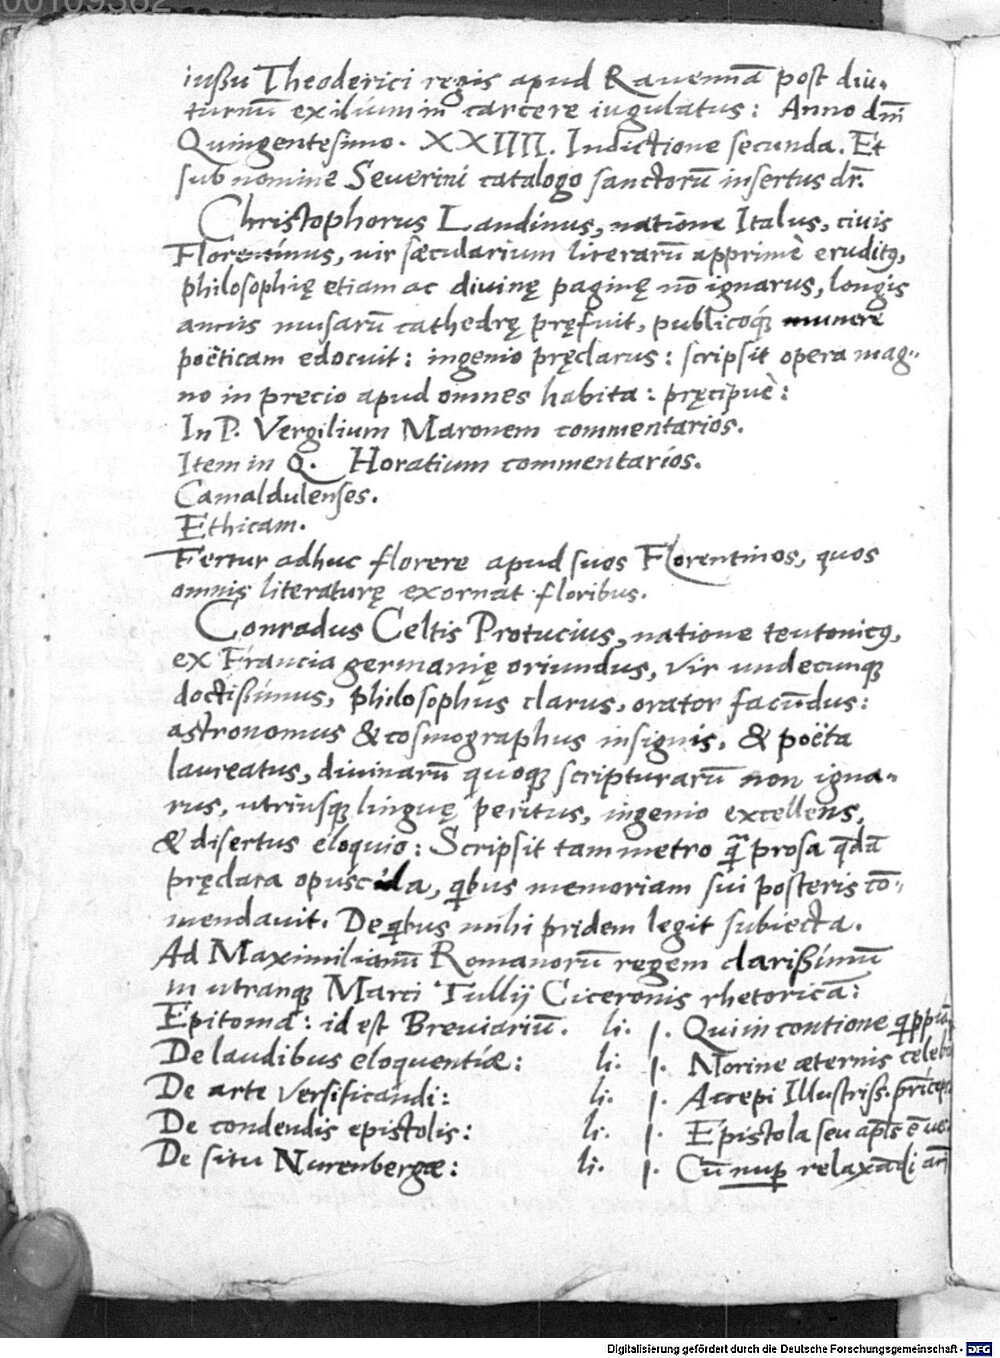 00109362
iussu Theoderici regis apud Rauennā post diu-
turnū exilium in carcere iugulatus: Anno dn̄i
Quingentesimo. XXIIII. Indictione secunda. Et
sub nomine Seuerini catalogo sanctorū insertus dr̄.
Christophorus Landinus, natione Italus, ciuis
Florentinus, uir sæcularium literarū apprimè eruditꝯ,
philosophię etiam ac diuinę paginę nō ignarus, longis
annis musarū cathedrę pręfuit, publicoq́ꝫ munere
poëticam edocuit: ingenio pręclarus: scripsit opera mag-
no in precio apud omnes habita: pręcipuè:
In P. Vergilium Maronem commentarios.
Item in Q. Horatium commentarios.
Camaldulenses.
Ethicam.
Fertur adhuc florere apud suos Florentinos, quos
omnis literaturę exornat floribus.
Conradus Celtis Protucius, natione teutonicꝯ,
ex Francia germanię oriundus, vir undecunqꝫ
doctissimus, philosophus clarus, orator facundus:
astronomus & cosmographus insignis, & poëta
laureatus, diuinarū quoqꝫ scripturarū non igna-
rus, utriusqꝫ linguę peritus, ingenio excellens,
& disertus eloquio: Scripsit tam metro q̄ prosa q̄dā
pręclara opuscula, qbus memoriam sui posteris cō-
mendauit. De qbus mihi pridem legit subiecta.
Ad Maximilianū Romanorū regem clarissimū
in utranqꝫ Marci Tullij Ciceronis rhetoricā:
Epitoma: id est Breuiariū. li. 1. Qui in contione
De laudibus eloquentiæ: li. 1. Norine æternis
De arte versificandi: li. 1. Accepi Illustriss.
De condendis epistolis: li. 1. Epistola seu
De situ Nurenbergæ: li. 1. Cū nuꝑ relaxādi
Digitalisierung gefördert durch die Deutsche Forschungsgemeinschaft - DFG